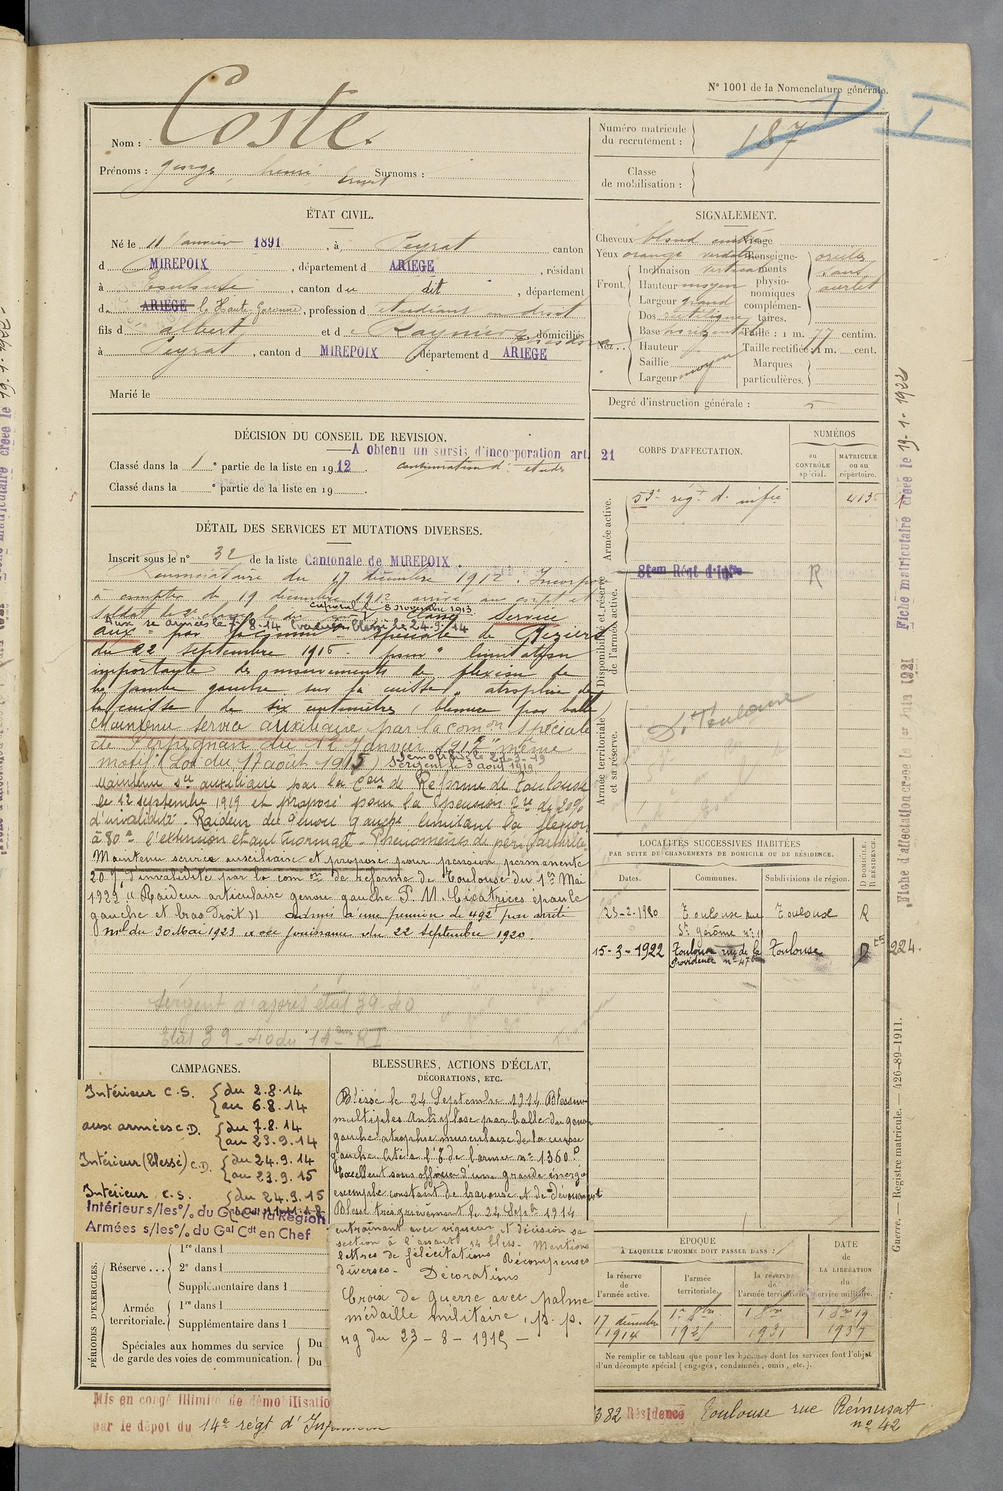 N° 1001 de la Nomenclature générale.
D I
Coste
Nom :
Prénoms : George, henri, Ernest Surnoms :
Numéro matricule du recrutement : 187
Classe de mobilisation :
ÉTAT CIVIL.
Né le 11 Janvier 1891, à Peyrat canton
d MIREPOIX, département d ARIÈGE, résidant
à Toulouse, canton du dit, département
d ARIÈGE la Haute Garonne, profession d étudiant en droit
fils d albert et d Raynier domiciliés
à Peyrat, canton d MIREPOIX département d ARIEGE
Marié le
SIGNALEMENT.
Cheveux blond Visage
Yeux orange verdâtre Renseigne-
Front. Inclinaison verticale ments
Hauteur moyen physio-
Largeur grand nomiques
complémen-
taires.
oreille
sans
ourlet
Nez... Dos rectiligne
Base horizontale Taille : 1 m. 77 centim.
Hauteur Taille rectifiée : 1 m. cent.
Saillie Marques
Largeur moyen particulières.
Degré d'instruction générale : 5
DÉCISION DU CONSEIL DE REVISION.
A obtenu un sursis d'incorporation art. 21
Classé dans la 1e partie de la liste en 1912. continuation d' études
Classé dans la e partie de la liste en 19
CORPS D'AFFECTATION.
NUMÉROS
au CONTRÔLE spécial.
MATRICULE ou au répertoire.
Armée active.
53e régt d'infie
Disponibilité et réserve de l'armée active.
R
Armée territoriale et sa réserve.
D. Toulouse
DÉTAIL DES SERVICES ET MUTATIONS DIVERSES.
Inscrit sous le n° 32 de la liste Cantonale de MIREPOIX.
du 17 décembre 1912. Incorporé
à compter du 19 décembre 1912 arrivé au corps et
soldat de 2e classe le caporal le 8 novembre 1913 Classé Service
Aux armées le 7-8-14 Blessé le 24-9-14
aux par spéciale de Béziers
du 22 septembre 1915 pour "limitation
importante des mouvements de flexion de
la jambe gauche sur la cuisse, atrophie de
la cuisse de six centimètres (blessure par balle)
Maintenu service auxiliaire par la comon spéciale
de Perpignan du 12 Janvier même
motif (Loi du 17 août 1915) Démobilisé le Sergent le 3 août 1919
Maintenu sce auxiliaire par la Con de Réforme de Toulouse
le 12 septembre 1919 et proposé pour la pension de 20%
d'invalidité. Raideur du genou Gauche limitant la flexion
à 80° l'extension étant normale. Phénomènes de périarthrite
Maintenu service auxiliaire et proposé pour pension permanente
20% d'invalidité par la com on de réforme de Toulouse du 1er Mai
1922 "Raideur articulaire genou gauche P. M. Cicatrices épaule
gauche et bras droit" Admis à une pension de 492f par arrêté
mel du 30 Mai 1923 avec jouissance du 22 septembre 1920.
Sergent d'après état 39-40
Etat 39-40 du 14ème RI
LOCALITÉS SUCCESSIVES HABITÉES
PAR SUITE DE CHANGEMENTS DE DOMICILE OU DE RÉSIDENCE.
Dates. Communes. Subdivisions de région. D DOMICILE. R RÉSIDENCE.
Toulouse rue St Jérôme n° 11 Toulouse R
15-3-1922 Toulouse rue de la Providence n° 47 bis Toulouse D
224.
CAMPAGNES.
Intérieur C.S. du 2.8.14
au 6.8.14
aux armées C.D. du 7.8.14
au 23.9.14
Intérieur (Blessé) C.D. du 24.9.14
au 23.9.15
Intérieur C.S. du 24.9.15
Intérieur s/les °/. du Gal Cdt la Région
Armées s/les °/. du Gal Cdt en Chef
BLESSURES, ACTIONS D'ÉCLAT,
DÉCORATIONS, ETC.
Blessé le 24 Septembre 1914 Blessures
multiples Ankylose par balle du genou
gauche atrophie musculaire de la cuisse
gauche Cité à l'O. de l'armée n° 1360 P
Excellent sous officier d'une grande énergie
exemple constant de bravoure et de dévouement
Blessé très grièvement le 24 Septbre 1914
entrainant avec vigueur et décision sa
section à l'assaut, 14 bless. Mentions
lettres de félicitations Récompenses
diverses - Décorations
Croix de guerre avec palme
médaille militaire, p. p.
rg du 23-8-1915 -
PÉRIODES D'EXERCICES.
Réserve... 1re dans l
2e dans l
Supplémentaire dans l
Armée territoriale. 1re dans l
Supplémentaire dans l
Spéciales aux hommes du service de garde des voies de communication. Du
Du
ÉPOQUE
À LAQUELLE L'HOMME DOIT PASSER DANS :
DATE de LA LIBÉRATION du service militaire.
la réserve de l'armée active.
l'armée territoriale.
la réserve de l'armée territoriale.
17 décembre 1914
Ne remplir ce tableau que pour les hommes dont les services font l'objet
d'un décompte spécial (engagés, condamnés, omis, etc.).
Mis en congé illimité de démobilisatio
par le dépôt du 14e régt d'Infanterie
382 Résidence Toulouse rue Rémusat
n° 42
Fiche matriculaire créée le 19-1-1922
Fiche d'affectation créée le 1er Juin 1921
Guerre. — Registre matricule. — 426-89-1911.